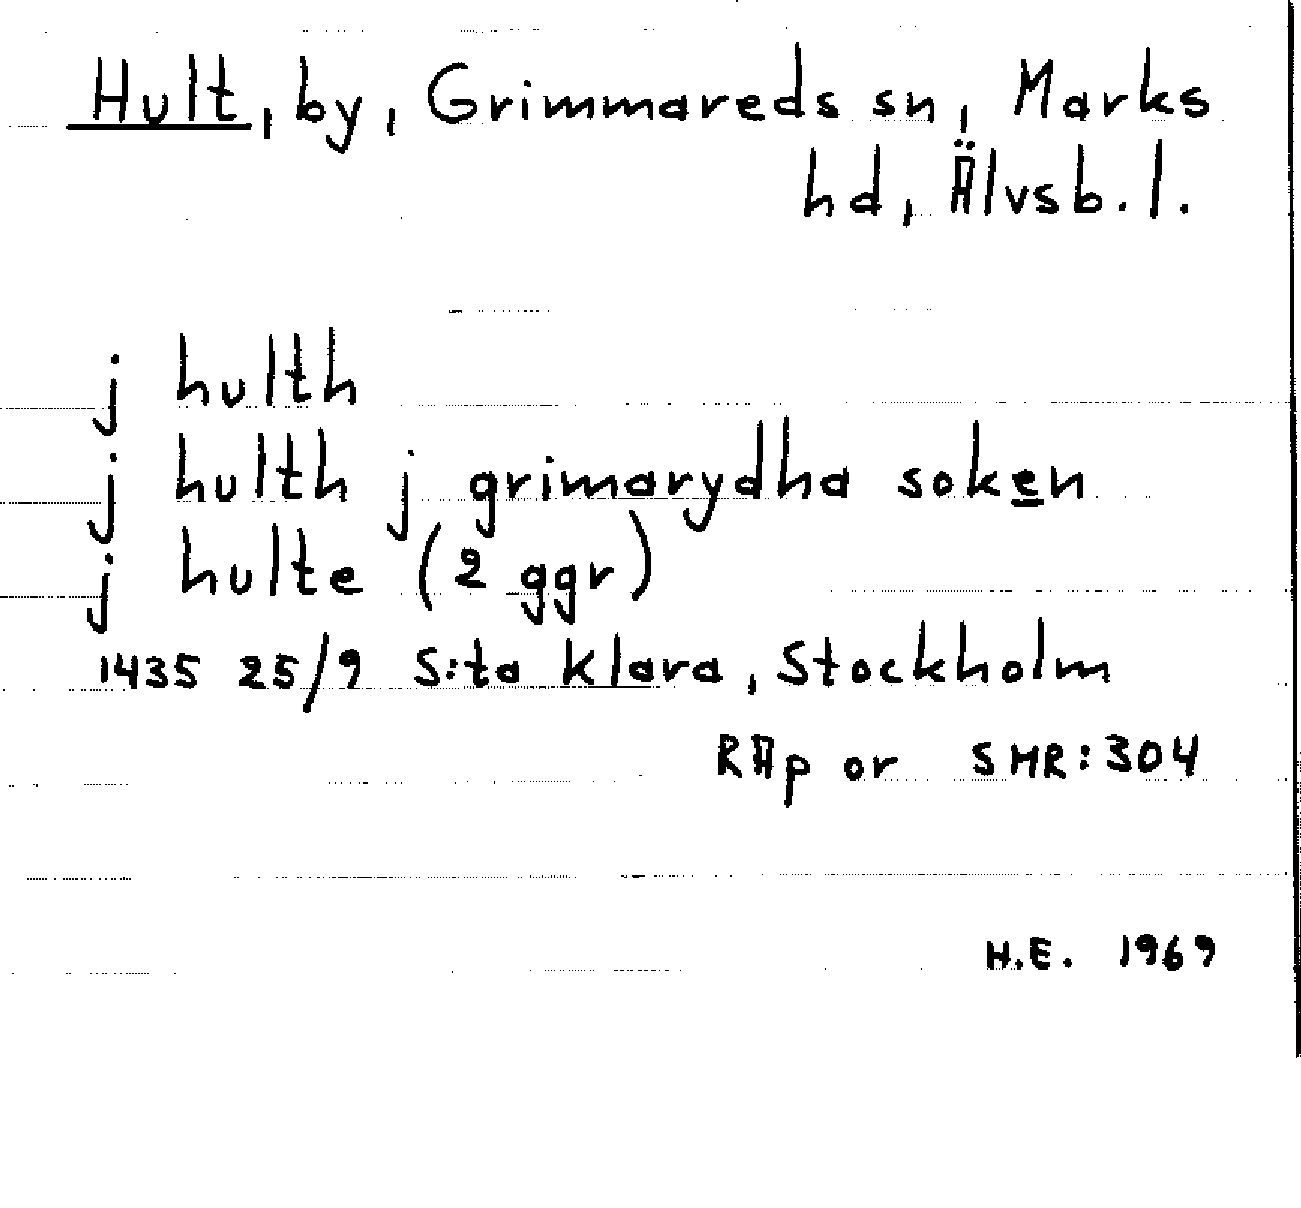 Hult, by, Grimmareds sn, Marks
hd, Älvsb. l.
j hulth
j hulth j grimarydha soken
j hulte (2 ggr)
1435 25/9 S:ta Klara, Stockholm
RAp or SMR:304
H.E. 1969